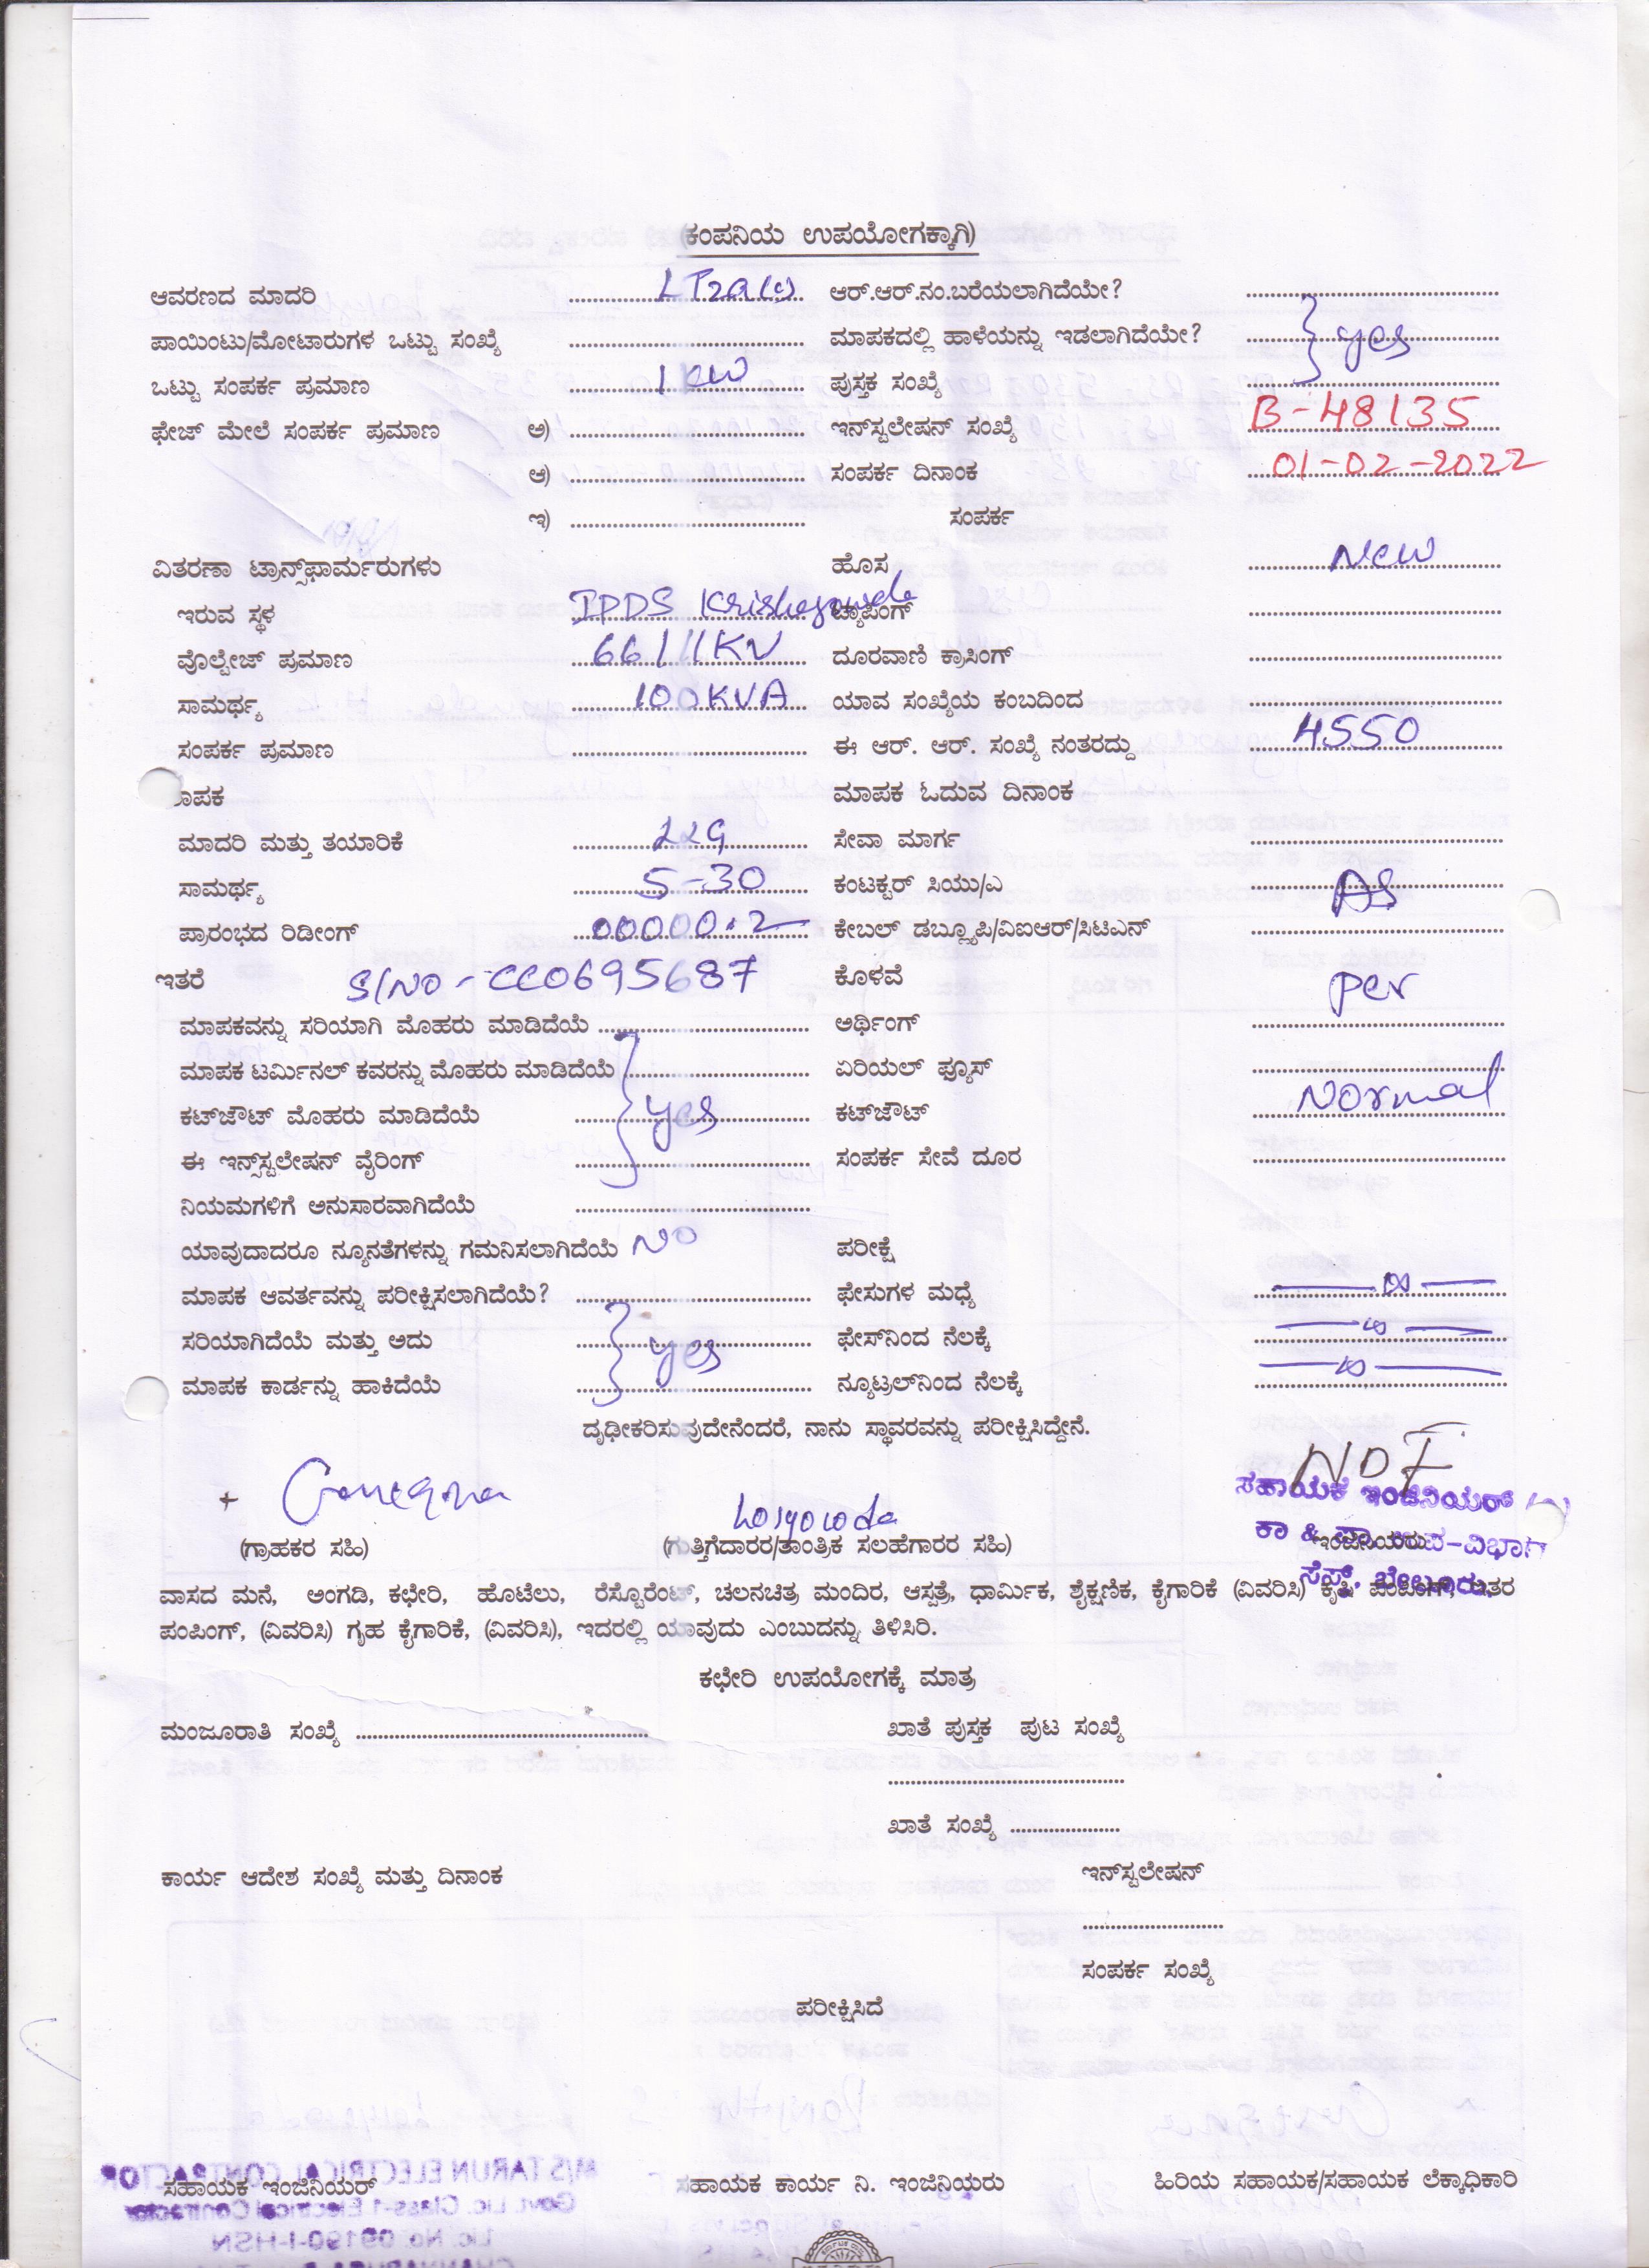 (ಕಂಪನಿಯ ಉಪಯೋಗಕ್ಕಾಗಿ)
ಆವರಣದ ಮಾದರಿ LT2a(i) ಆರ್.ಆರ್.ನಂ.ಬರೆಯಲಾಗಿದೆಯೇ?
ಪಾಯಿಂಟು/ಮೋಟಾರುಗಳ ಒಟ್ಟು ಸಂಖ್ಯೆ ಮಾಪಕದಲ್ಲಿ ಹಾಳೆಯನ್ನು ಇಡಲಾಗಿದೆಯೇ? yes
ಒಟ್ಟು ಸಂಪರ್ಕ ಪ್ರಮಾಣ 1 KW ಪುಸ್ತಕ ಸಂಖ್ಯೆ
ಫೇಜ್ ಮೇಲೆ ಸಂಪರ್ಕ ಪ್ರಮಾಣ ಅ) ಇನ್‌ಸ್ಟಲೇಷನ್ ಸಂಖ್ಯೆ B-48135
ಆ) ಸಂಪರ್ಕ ದಿನಾಂಕ 01-02-2022
ಇ) ಸಂಪರ್ಕ
ವಿತರಣಾ ಟ್ರಾನ್ಸ್‌ಫಾರ್ಮರುಗಳು ಹೊಸ New
ಇರುವ ಸ್ಥಳ ಟ್ಯಾಪಿಂಗ್
ವೊಲ್ಟೇಜ್ ಪ್ರಮಾಣ 66/11KV ದೂರವಾಣಿ ಕ್ರಾಸಿಂಗ್
ಸಾಮರ್ಥ್ಯ 100KVA ಯಾವ ಸಂಖ್ಯೆಯ ಕಂಬದಿಂದ
ಸಂಪರ್ಕ ಪ್ರಮಾಣ ಈ ಆರ್. ಆರ್. ಸಂಖ್ಯೆ ನಂತರದ್ದು 4550
ಮಾಪಕ ಓದುವ ದಿನಾಂಕ
ಮಾದರಿ ಮತ್ತು ತಯಾರಿಕೆ L&G ಸೇವಾ ಮಾರ್ಗ
ಸಾಮರ್ಥ್ಯ 5-30 ಕಂಟಕ್ಟರ್ ಸಿಯು/ಎ As
ಪ್ರಾರಂಭದ ರಿಡೀಂಗ್ 00000.2 ಕೇಬಲ್ ಡಬ್ಲ್ಯೂಪಿ/ವಿಐಆರ್/ಸಿಟಿಎಸ್
ಇತರೆ S/NO-CC0695687 ಕೊಳವೆ per
ಮಾಪಕವನ್ನು ಸರಿಯಾಗಿ ಮೊಹರು ಮಾಡಿದೆಯೆ ಅರ್ಥಿಂಗ್
ಮಾಪಕ ಟರ್ಮಿನಲ್ ಕವರನ್ನು ಮೊಹರು ಮಾಡಿದೆಯೆ ಏರಿಯಲ್ ಫ್ಯೂಸ್
ಕಟ್‌ಔಟ್ ಮೊಹರು ಮಾಡಿದೆಯೆ yes ಕಟ್‌ಔಟ್ Normal
ಈ ಇನ್ಸ್‌ಸ್ಟಲೇಷನ್ ವೈರಿಂಗ್ ಸಂಪರ್ಕ ಸೇವೆ ದೂರ
ನಿಯಮಗಳಿಗೆ ಅನುಸಾರವಾಗಿದೆಯೆ
ಯಾವುದಾದರೂ ನ್ಯೂನತೆಗಳನ್ನು ಗಮನಿಸಲಾಗಿದೆಯೆ NO ಪರೀಕ್ಷೆ
ಮಾಪಕ ಆವರ್ತವನ್ನು ಪರೀಕ್ಷಿಸಲಾಗಿದೆಯೆ? ಫೇಸುಗಳ ಮಧ್ಯೆ
ಸರಿಯಾಗಿದೆಯೆ ಮತ್ತು ಅದು yes ಫೇಸ್‌ನಿಂದ ನೆಲಕ್ಕೆ
ಮಾಪಕ ಕಾರ್ಡನ್ನು ಹಾಕಿದೆಯೆ ನ್ಯೂಟ್ರಲ್‌ನಿಂದ ನೆಲಕ್ಕೆ
ದೃಢೀಕರಿಸುವುದೇನೆಂದರೆ, ನಾನು ಸ್ಥಾವರವನ್ನು ಪರೀಕ್ಷಿಸಿದ್ದೇನೆ.
ಸಹಾಯಕ ಇಂಜಿನಿಯರ್
(ಗ್ರಾಹಕರ ಸಹಿ) (ಗುತ್ತಿಗೆದಾರರ/ತಾಂತ್ರಿಕ ಸಲಹೆಗಾರರ ಸಹಿ) ಇಂಜಿನಿಯರು
ಕಾ & ಪಾ ಉಪ-ವಿಭಾಗ
ಸೆಸ್ಕ್, ಬೇಲೂರು
ವಾಸದ ಮನೆ, ಅಂಗಡಿ, ಕಛೇರಿ, ಹೊಟೆಲು, ರೆಸ್ಟೊರೆಂಟ್, ಚಲನಚಿತ್ರ ಮಂದಿರ, ಆಸ್ಪತ್ರೆ, ಧಾರ್ಮಿಕ, ಶೈಕ್ಷಣಿಕ, ಕೈಗಾರಿಕೆ (ವಿವರಿಸಿ) ಕೃಷಿ ಪಂಪಿಂಗ್, ಇತರ
ಪಂಪಿಂಗ್, (ವಿವರಿಸಿ) ಗೃಹ ಕೈಗಾರಿಕೆ, (ವಿವರಿಸಿ), ಇದರಲ್ಲಿ ಯಾವುದು ಎಂಬುದನ್ನು ತಿಳಿಸಿರಿ.
ಕಛೇರಿ ಉಪಯೋಗಕ್ಕೆ ಮಾತ್ರ
ಮಂಜೂರಾತಿ ಸಂಖ್ಯೆ ಖಾತೆ ಪುಸ್ತಕ ಪುಟ ಸಂಖ್ಯೆ
ಖಾತೆ ಸಂಖ್ಯೆ
ಕಾರ್ಯ ಆದೇಶ ಸಂಖ್ಯೆ ಮತ್ತು ದಿನಾಂಕ ಇನ್‌ಸ್ಟಲೇಷನ್
ಸಂಪರ್ಕ ಸಂಖ್ಯೆ
ಪರೀಕ್ಷಿಸಿದೆ
ಸಹಾಯಕ ಇಂಜಿನಿಯರ್ ಸಹಾಯಕ ಕಾರ್ಯ ನಿ. ಇಂಜಿನಿಯರು ಹಿರಿಯ ಸಹಾಯಕ/ಸಹಾಯಕ ಲೆಕ್ಕಾಧಿಕಾರಿ